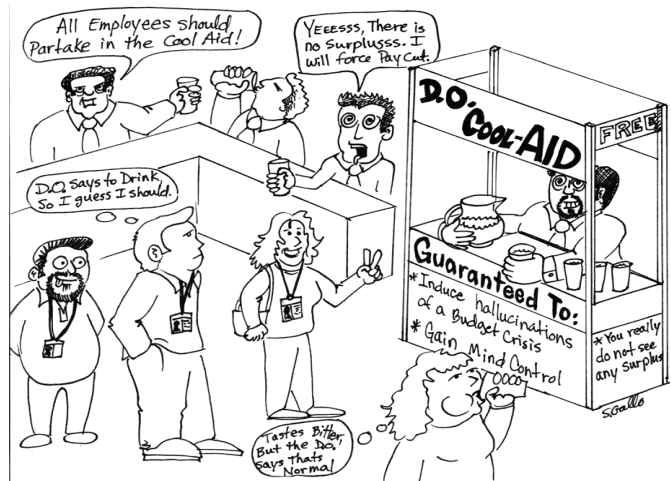 All Employees should
Partake in the Cool Aid!
Yeeesss, There is
no Surplusss. I
will force Pay Cut.
D.O.
COOL-AID
FREE
D.O. says to Drink,
So I guess I should.
Guaranteed To:
* Induce hallucinations
of a Budget Crisis
* Gain Mind Control
* You really
do not see
any surplus
S.Gallo
Tastes Bitter,
But the D.O.
says thats
Normal